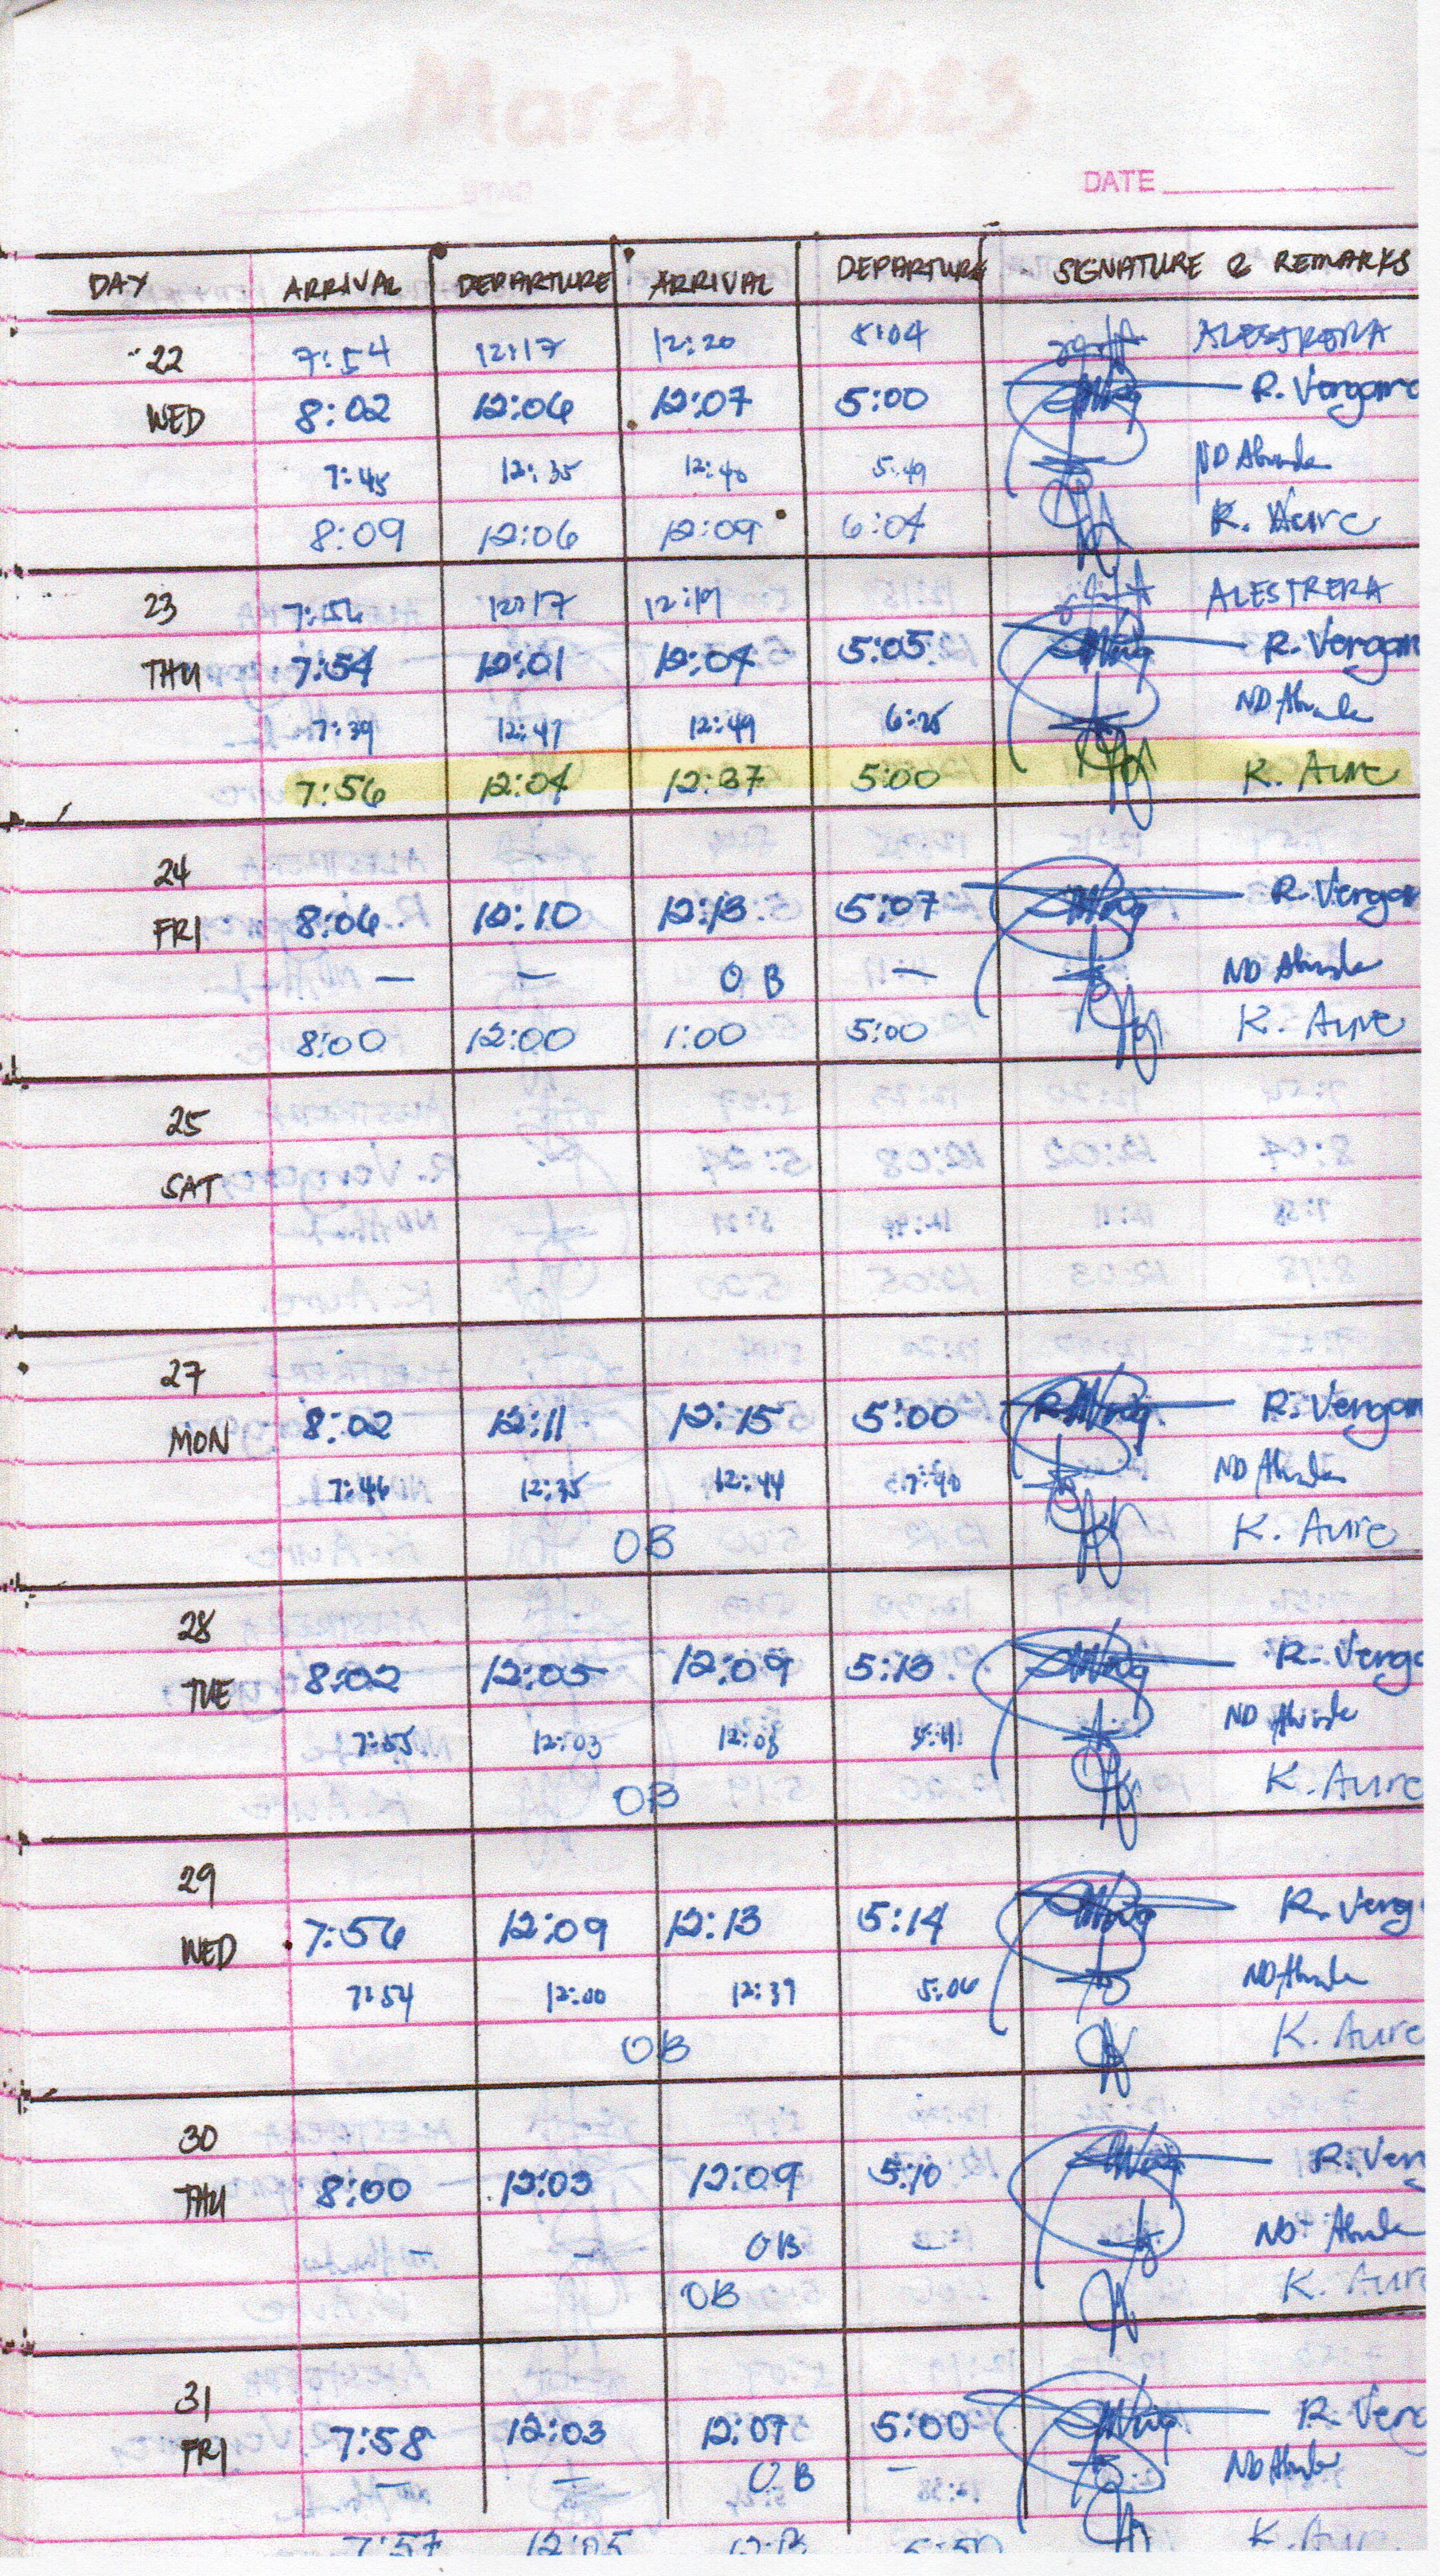 March 2023
DATE
DAY ARRIVAL DEPARTURE ARRIVAL DEPARTURE SIGNATURE & REMARKS
22 7:54 12:17 12:20 5:04 ALESTRERA
WED 8:02 12:06 12:07 5:00 R. Vergara
7:45 12:35 12:40 5:49 ND
8:09 12:06 12:09 6:04 K. Aure
23 7:56 12:17 12:19 ALESTRERA
THU 7:54 12:01 12:04 5:05 R. Vergar
7:39 12:47 12:49 6:25 ND
7:56 12:04 12:37 5:00 K. Aure
24
FRI 8:06 12:10 12:13 5:07 R. Vergar
— — OB — ND
8:00 12:00 1:00 5:00 K. Aure
25
SAT
27
MON 8:02 12:11 12:15 5:00 R. Vergar
7:46 12:35 12:44 7:40 ND
OB K. Aure
28
TUE 8:02 12:05 12:09 5:13 R. Verga
7:55 12:03 12:08 5:11 ND
OB K. Aure
29
WED 7:56 12:09 12:13 5:14 R. Verg
7:54 12:00 12:39 5:06 ND
OB K. Aure
30
THU 8:00 12:03 12:09 5:10 R. Ver
— — OB — ND
OB K. Aure
31
FRI 7:58 12:03 12:07 5:00 R. Verg
— — OB — ND
7:57 12:05 K. Aure